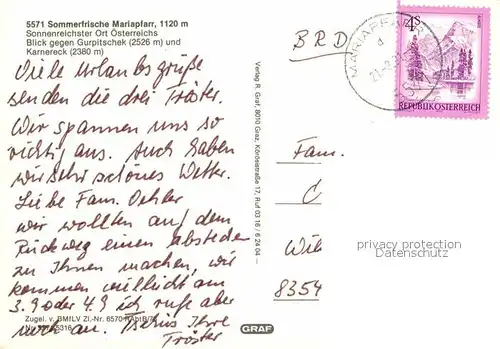 5571 Sommerfrische Mariapfarr, 1120 m
Sonnenreichster Ort Österreichs
Blick gegen Gurpitschek (2526 m) und
Karnereck (2380 m)
Viele Urlaubsgrüße
senden die drei Tröster.
Wir spannen uns so
richtig aus. Auch haben
wir sehr schönes Wetter.
Liebe Fam. Oehler
wir wollten auf dem
Rückweg einen abstecher
zu Ihnen machen, wir
kommen vielleicht am
3.9 oder 4.9 ich rufe aber
noch an. Tschüs Ihre
Tröster
Zugel. v. BMfLV Zl.-Nr. 6570
GRAF
Verlag R. Graf, 8010 Graz, Körösistraße 17, Ruf 03 16 / 6 24 04
BRD
MARIAPFARR
4S
REPUBLIK ÖSTERREICH
Fam.
8354
privacy protection
Datenschutz